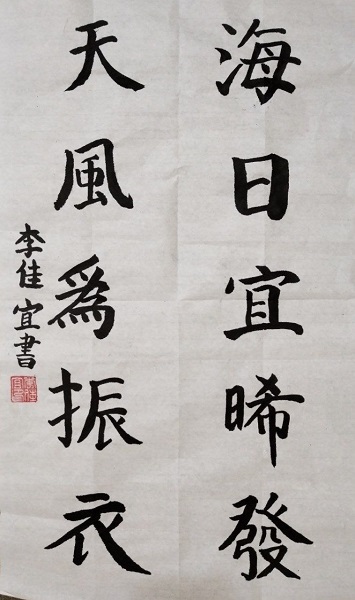 海日宜晞發
天風爲振衣
李佳宜書